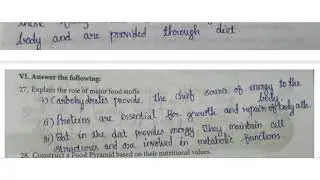 body and are provided through diet
VI. Answer the following:
27. Explain the role of major food stuffs.
i) Carbohydrates provide the chief source of energy to the
body.
ii) Proteins are essential for growth and repair of body cells.
iii) Fat in the diet provides energy. They maintain cell
structures and are involved in metabolic functions.
28. Construct a Food Pyramid based on their nutritional values.